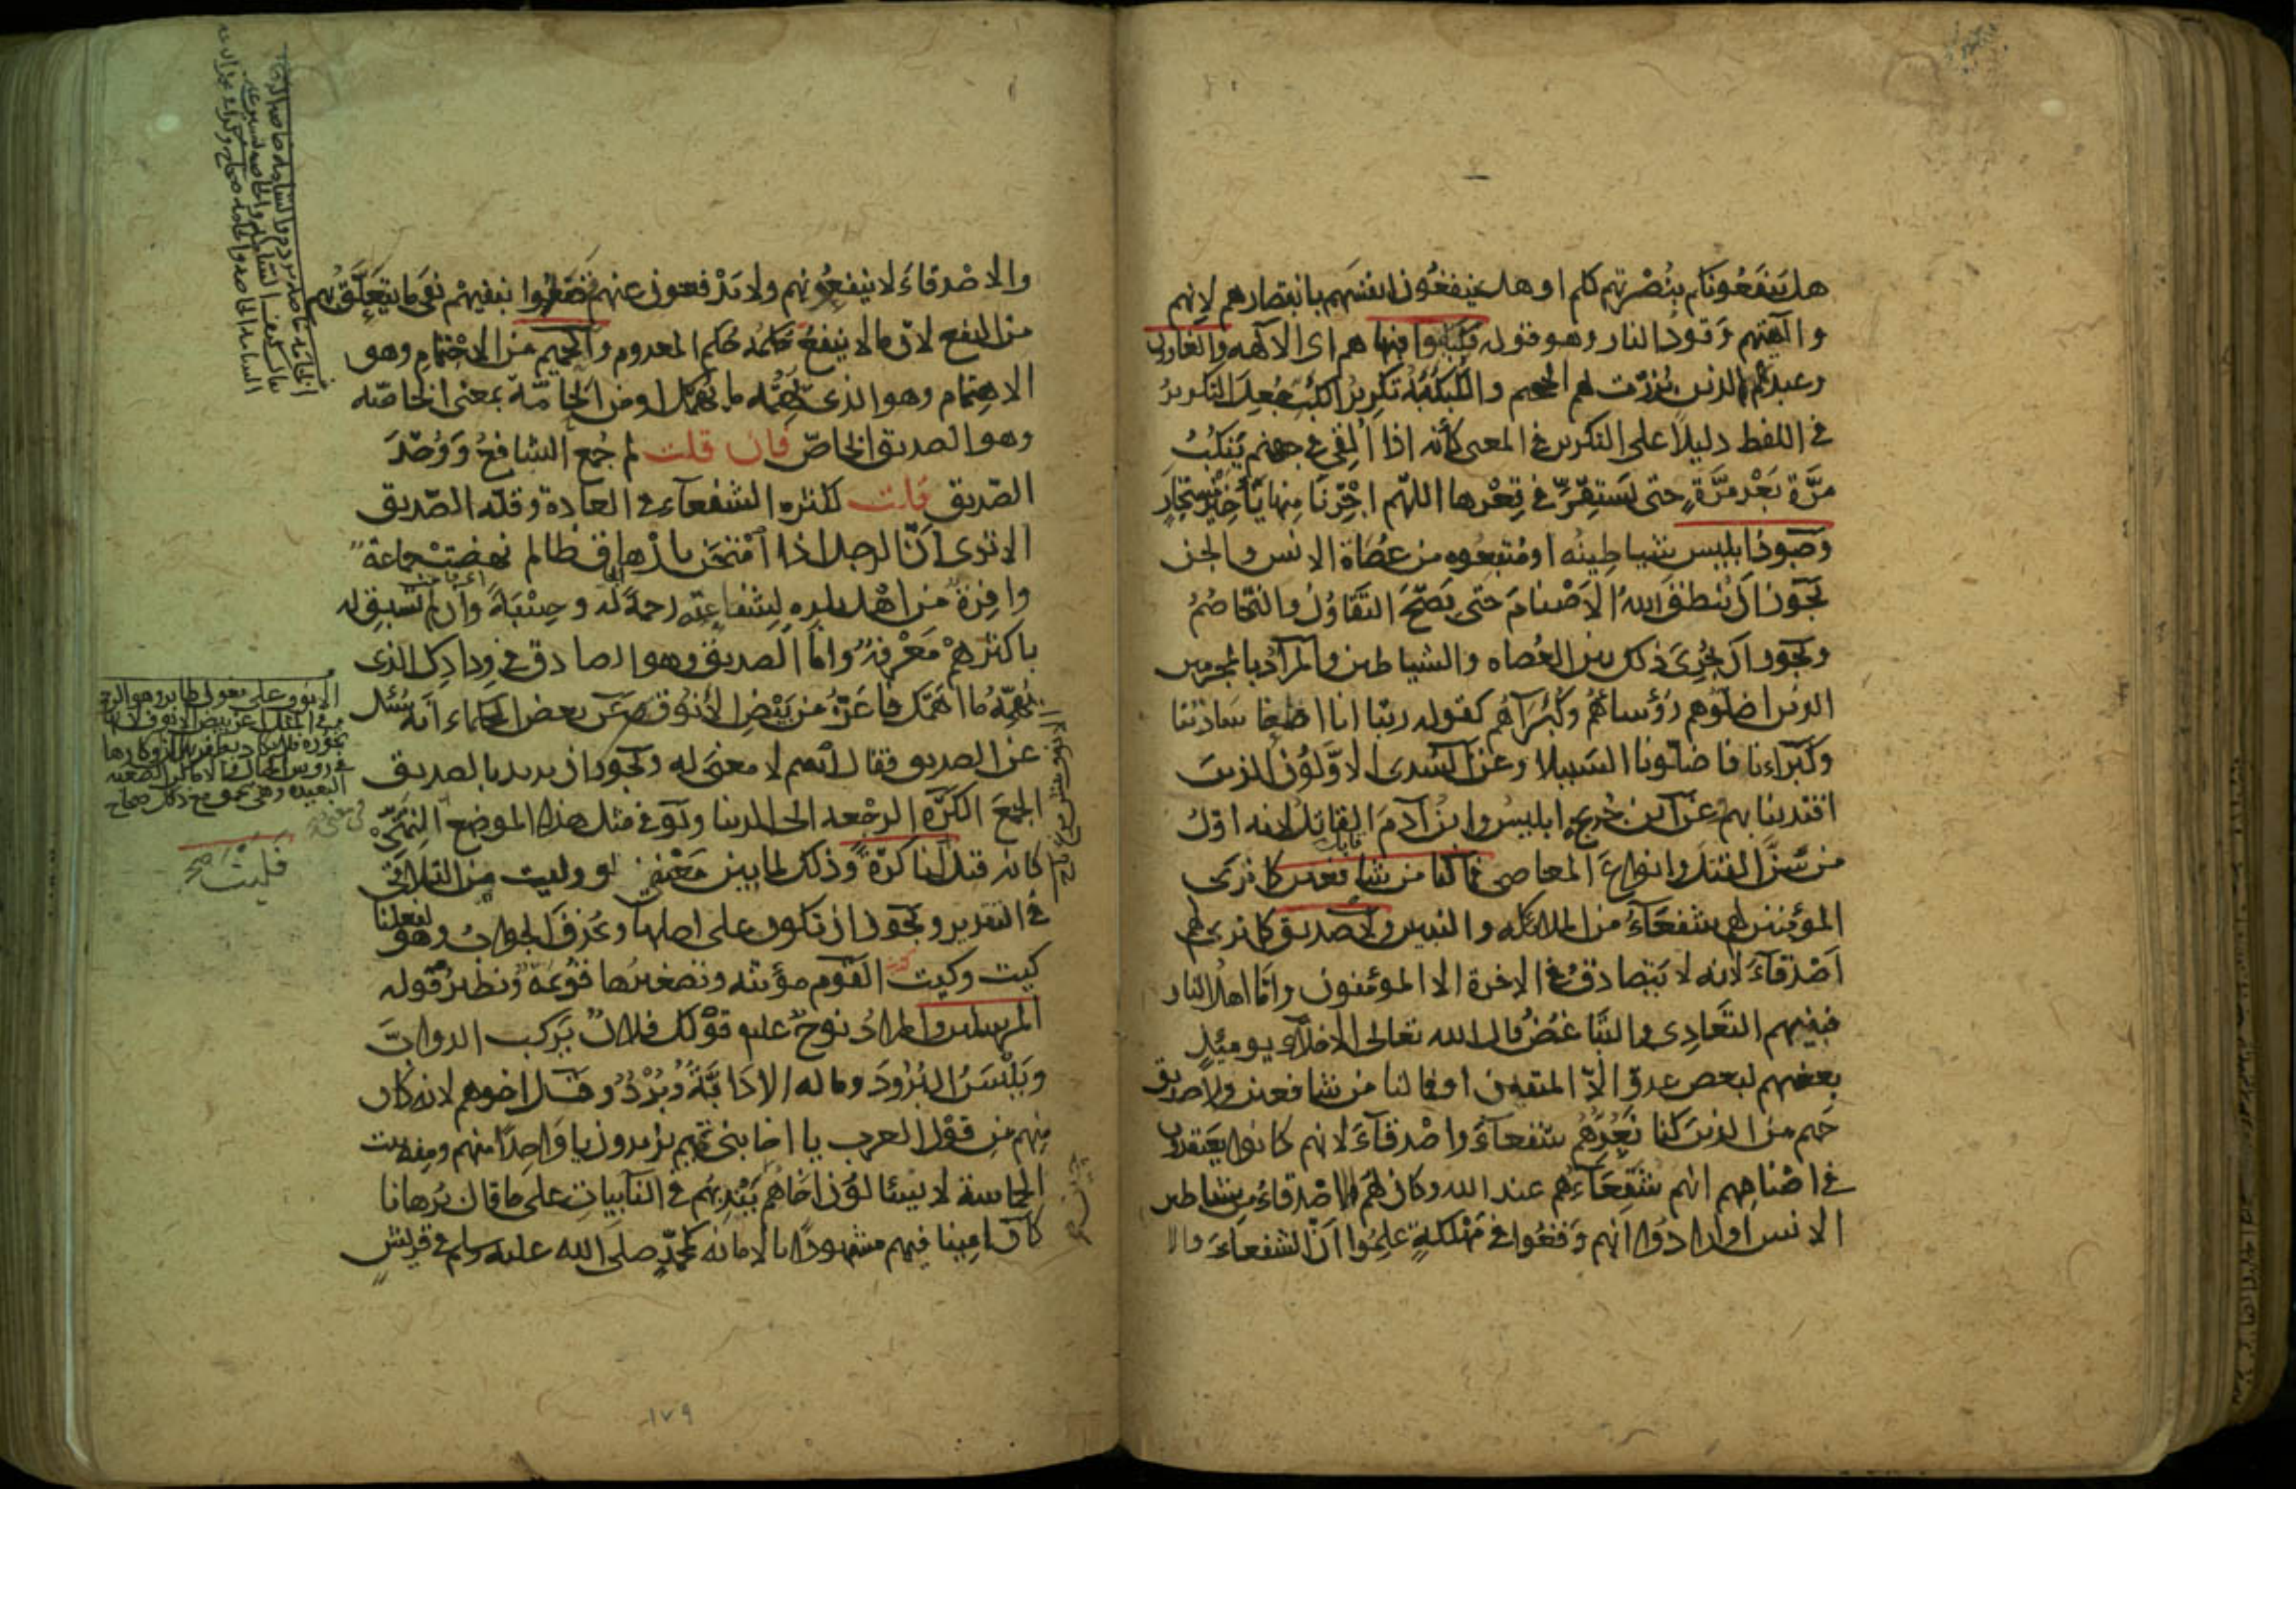 هل ينفعونكم بنصرتهم لكم او هل ينفعون انفسهم بانتصارهم لانهم
وآلهتهم وقود النار وهو قوله فكبكبوا فيها هم اى الآلهه والغاوون
وعبدتهم الذين برزت لهم الجحيم والكبكبة تكرير الكبّ جعل التكرير
فى اللفظ دليلا على التكرير فى المعنى كأنه اذا اُلقى فى جهنم ينكبّ
مرّة بعد مرّة حتى يستقرّ فى قعرها اللهم اجرنا منها يا خير مستجار
وجنود ابليس شياطينه او متبعوه من عصاة الانس والجن
يجوز ان يُنطق الله الاصنام حتى يصحّ التقاوُل والتخاصُم
ويجوز ان يجرى ذلك بين العصاه والشياطين والمراد بالمجرمين
الذين اضلّوهم رؤساهُم وكبُرآهُم كقوله ربّنا انا اطعنا سادتنا
وكبراءنا فاضلّونا السبيلا وعن السّدى الاوّلون الذين
اقتدينا بهم عن ابن جُريج ابليس وابن آدم القاتل لانه اوّل
من سنّ القتل وانواع المعاصى فما لنا من شافعين كما نرى
المؤمنين لهم شفعآء من الملائكه والنبيين ولا صديق كما نرى لهم
اصدقآء لانه لا يتصادق فى الاخرة الا المؤمنون وامّا اهل النار
فبينهم التعادِى والتباغضُ قال الله تعالى الاخلّاء يومئذٍ
بعضهم لبعض عدوّ الّا المتقين او فما لنا من شافعين ولا صديق
حميم من الذين كنا نعُدّهُم شفعآء واصدقآء لانهم كانوا يعتقدون
فى اصنامهم انهم شفعآءُهم عند الله وكان لهم الاصدقاءُ من شياطين
الانس او ارادُوا انهم وقعُوا فى مهلكةٍ علِمُوا انّ الشفعاءَ والا
والاصدقاءَ لا ينفعُونهم ولا يدفعون عنهم فقصَدُوا بنفيهم نفى ما يتعلّق بهم
من النفع لانّ ما لا ينفعُ حكمُه حُكم المعدوم والحميم من الاحتمام وهو
الاهتمام وهو الذى يُهِمُّه ما يُهمّك او من الحآمّة بمعنى الخاصّه
وهو الصديق الخاصّ فان قلت لم جُمع الشافعُ ووُحّدَ
الصّديق قلت لكثره الشفعآء فى العادة وقلّه الصّديق
الا ترى انّ الرجل اذا امتُحن بارهاق ظالم نهضت جماعة
وافرة من اهل بلده لشفاعته رحمةً له وحِسْبَةً وان لم تسبق له
باكثرهمْ معرفة وامّا الصديق وهو الصادق فى ودادك الذى
يُهِمّهُ ما اهمّك فاعَزُّ من بيض الأنوق وعن بعض الحكماء انه سُئل
عن الصديق فقال اسم لا معنى له ويجوز ان يريد بالصديق
الجمعَ الكَرّه الرجْعه الى الدنيا ولو فى مثل هذا الموضع التمنّى
كانه قيل فليت لنا كرّةً وذلك لما بين معْنى لو وليت من التلاقى
فى التقدير ويجوز ان تكون على اصلها ويُحذف الجوابُ وهو لفعلنا
كيت وكيت القوم مؤنثه وتصغيرُها قُوَيمَةٌ ونظيرُ قوله
المرسلين والمرادُ نوحٌ عليه قوْلك فلانٌ يركب الدوابَّ
ويلْبسُ البُرودَ وماله الا دَابّةٌ وبُرْدٌ وقيل اخوهم لانه كان
منهم من قوْل العرب يا اخا بنى تميم يريدون يا واحِداً منهم ومنه بيت
الحماسة لا يسئالُون اخاهُم حين يندبهُم فى النآئباتِ على ما قال بُرهانا
كان امينا فيهم مشهودًا بالامانه كمحمّدٍ صلى الله عليه وسلم فى قريشٍ
الانوق على فعول طاير وهو الرخمة
وفى المثل اعز من بيض الانوق لانها
تحرزه فلا يكاد يظفر به لان اوكارها
فى روس الجبال والاماكن الصعبه
البعيده وهى تحمق مع ذلك صحاح
فليت صح
١٧٩